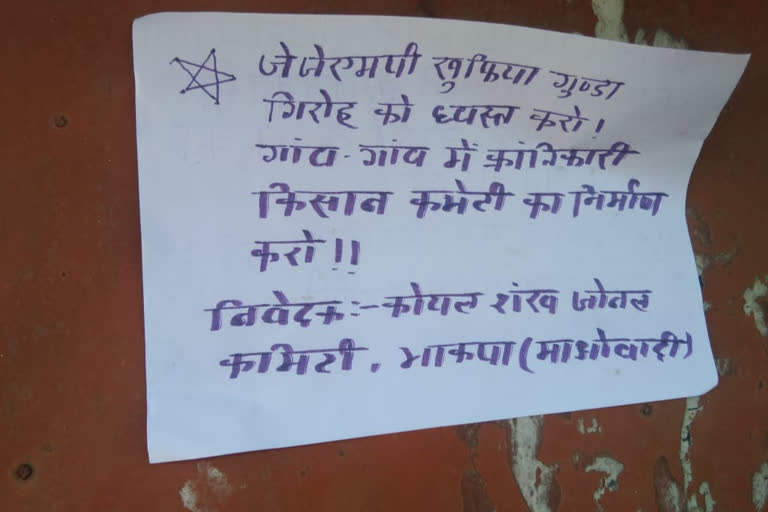 जेजेएमपी खुफिया गुण्डा
गिरोह को ध्वस्त करो!
गांव-गांव में क्रांतिकारी
किसान कमेटी का निर्माण
करो!!
निवेदक:- कोयल शंख जोनल
कमिटी, भाकपा (माओवादी)